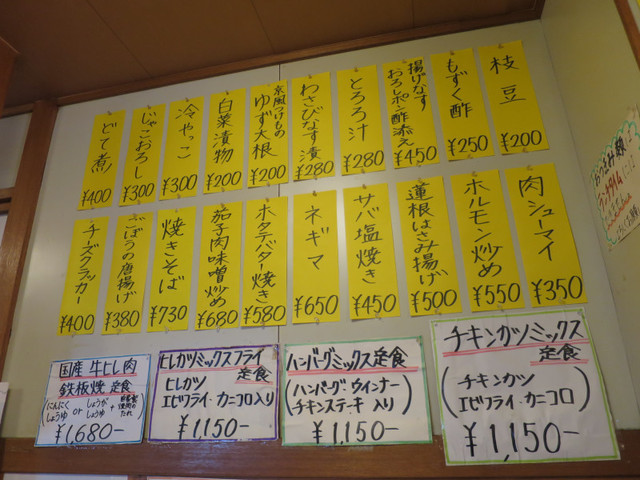 枝豆
¥200
もずく酢
¥250
揚げなす
おろしポン酢添え
¥450
とろろ汁
¥280
わさびなす漬
¥280
京風つけもの
ゆず大根
¥200
白菜漬物
¥200
冷やっこ
¥300
じゃこおろし
¥300
どて煮
¥400
肉シューマイ
¥350
ホルモン炒め
¥550
蓮根はさみ揚げ
¥500
サバ塩焼き
¥450
ネギマ
¥650
ホタテバター焼き
¥580
茄子肉味噌炒め
¥680
焼きそば
¥730
ごぼうの唐揚げ
¥380
チーズクラッカー
¥400
国産 牛ヒレ肉
鉄板焼 定食
(にんにくしょうゆ or しょうがしょうゆ +
¥1,680-
ヒレカツミックスフライ
定食
ヒレカツ
エビフライ・カニコロ入り
¥1,150-
ハンバーグミックス定食
(ハンバーグ ウインナー
チキンステーキ 入り)
¥1,150-
チキンカツミックス
定食
(チキンカツ
エビフライ・カニコロ)
¥1,150-